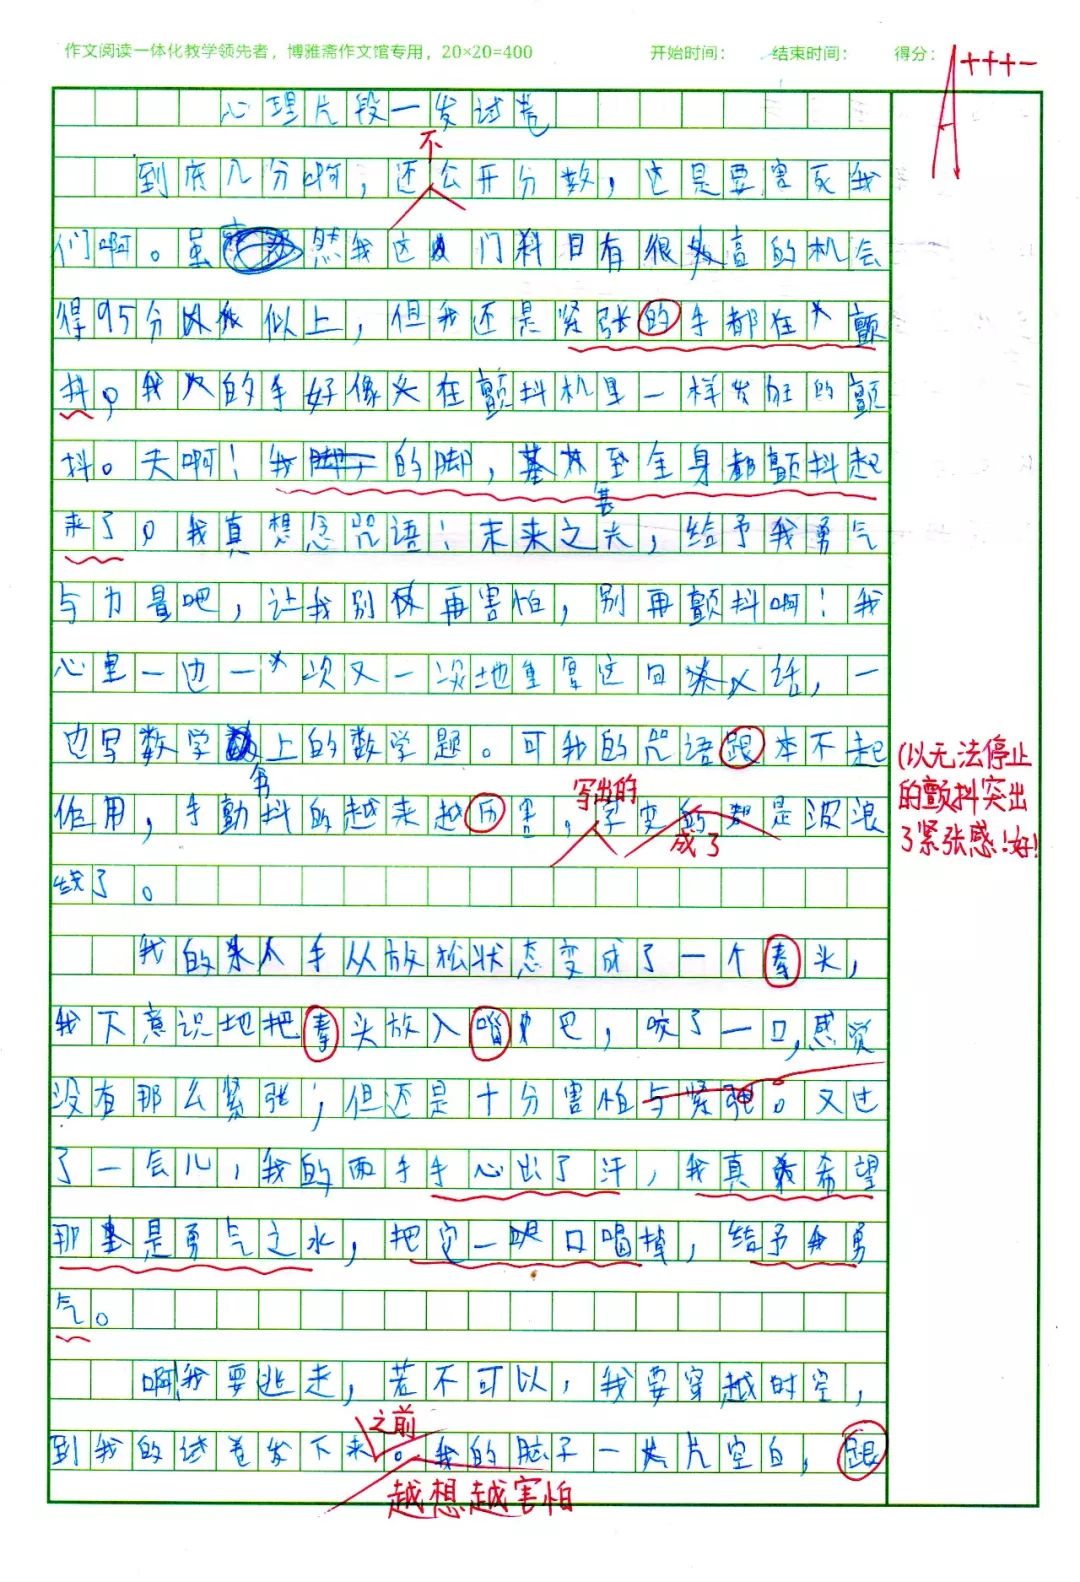 作文阅读一体化教学领先者，博雅斋作文馆专用，20×20=400 开始时间： 结束时间： 得分：
A+++-
心理片段一发试卷
不
到底几分啊，还公开分数，这是要害死我
们啊。虽然我这门科目有很高的机会
得95分以上，但我还是紧张的手都在颤
抖，我的手好像在颤抖机里一样发狂的颤
抖。天啊！我的脚，至全身都颤抖起
甚
来了，我真想念咒语：未来之光，给予我勇气
与力量吧，让我别再害怕，别再颤抖啊！我
心里一边一次又一次地重复这句话，一
边写数学上的数学题。可我的咒语跟本不起
书
写出的
作用，手动抖的越来越历害，字变的都是波浪
成了
线了。
(以无法停止
的颤抖突出
了紧张感！好！
我的手从放松状态变成了一个拳头，
我下意识地把拳头放入嘴巴，咬了一口，感觉
没有那么紧张；但还是十分害怕与紧张。又过
了一会儿，我的两手手心出了汗，我真希望
那是勇气之水，把它一口喝掉，给予勇
气。
啊我要逃走，若不可以，我要穿越时空，
之前
到我的试卷发下来。我的脑子一片空白，跟
越想越害怕